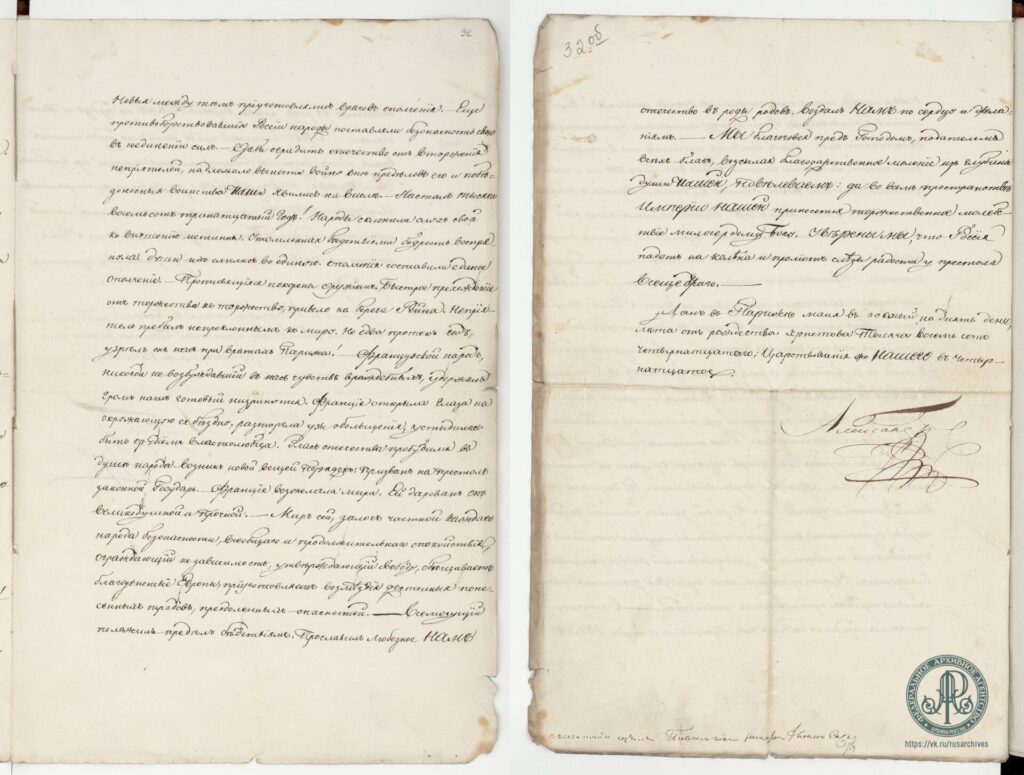 32
Новыя между тѣмъ пріуготовлялись враговъ ополченія. Еще
противоборствовавшія Россіи народы поставляли безопасность свою
въ соединеніи силъ. — Дабы оградить отечество отъ вторженія
непріятелей, надлежало вынести войну внѣ предѣловъ его и побѣ-
доносныя воинства НАШИ явились на Вислѣ. — Насталъ тысяча
восемьсотъ тринатцатый годъ! Народы склонили слухъ свой
ко вѣщанію истинны. Утомленная бѣдствіями бодрость воспря-
нула: души ихъ слились во единою. ополченія составили едино!
ополченіе. — Противящіися покорены оружіемъ. Быстрое прехожденіе
отъ торжества къ торжество, привело на берега Рейна. Непрія-
тель пребылъ непреклоннымъ къ миру. Но едва протекъ годъ,
узрѣлъ онъ насъ при вратахъ Парижа! — Французской народъ,
никогда не возбуждавшій въ насъ чувствъ враждебныхъ, удержалъ
громъ нашъ готовый низринутся. Франція открыла глаза на
окружающую ее бездну, расторгла узы обольщенія; устыдилась
быть орудіемъ властолюбца. Гласъ отечества пробудился въ
душѣ народа. возникъ новой вещей порядокъ. Призванъ на престолъ
законной Государь. — Франція возжелала мира. Ей дарованъ онъ
великодушной и прочной. — Миръ сей, залогъ частной каждаго
народа безопасности, всеобщаго и продолжительнаго спокойствія,
ограждающій независимость, утверждающій свободу, обѣщаваетъ
благоденствіе Европы, пріуготовляетъ возмездія достойныя поне-
сеннымъ трудамъ, преодоленнымъ опасностей. — Всемогущій
положилъ предѣлъ бѣдствіямъ. Прославилъ любезное НАМЪ
32 об
отечество въ роды родовъ. Воздалъ НАМЪ по сердцу и жела-
ніямъ. — МЫ благоговея предъ Господомъ, подателемъ
всѣхъ благъ, возсылая благодарственное моленіе изъ глубины
души НАШЕЙ, Повѣлѣваемъ: да во всемъ пространствѣ
Имперіи НАШЕЙ принесется торжественное молеб-
ствіе милосердому Богу. Увѣрены МЫ, что Россія
падетъ на колѣна и прольетъ слѣзы радости у престола
Всещедраго. —
Данъ въ Парижѣ маія въ осьмый надесять день,
лѣта отъ рождества Христова Тысяча восемь сотъ
четырнатцатаго; Царствованія же НАШЕГО въ четыр-
натцатое.
Александръ
ФЕДЕРАЛЬНОЕ АРХИВНОЕ АГЕНТСТВО
АРХИВЫ РОССИИ
https://vk.ru/rusarchives